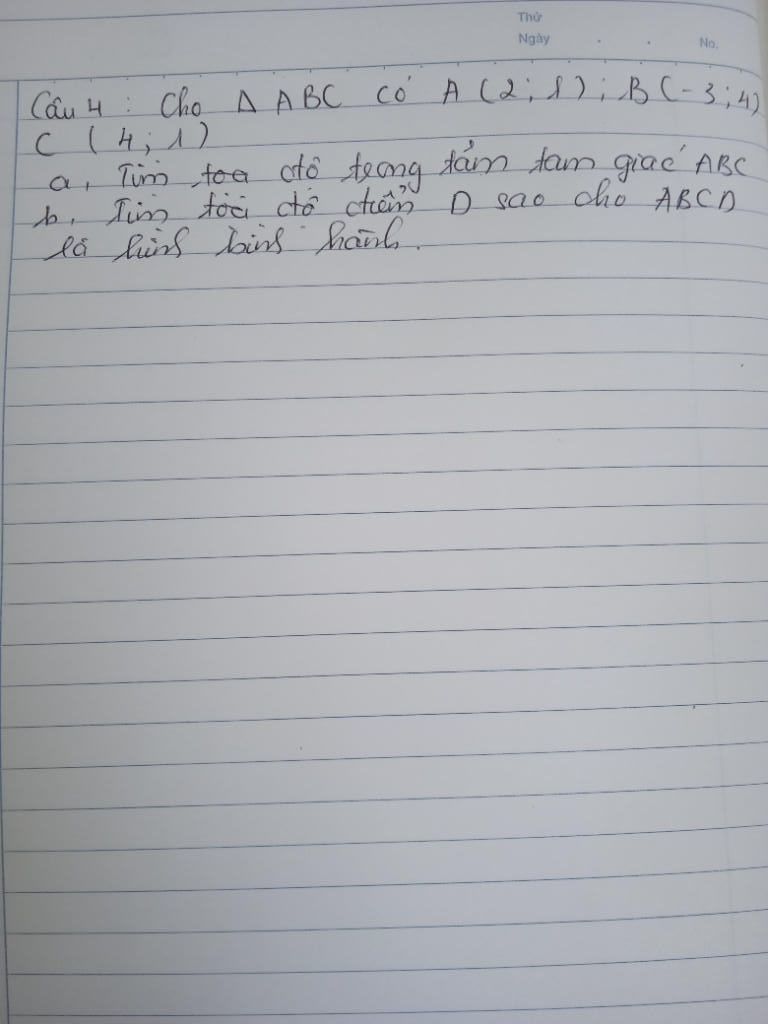 Thứ
Ngày . . No.
Câu 4 : Cho Δ ABC có A (2 ; 1) ; B (-3 ; 4)
C ( 4 ; 1 )
a, Tìm toạ độ trọng tâm tam giác ABC
b, Tìm toạ độ điểm D sao cho ABCD
là hình bình hành.